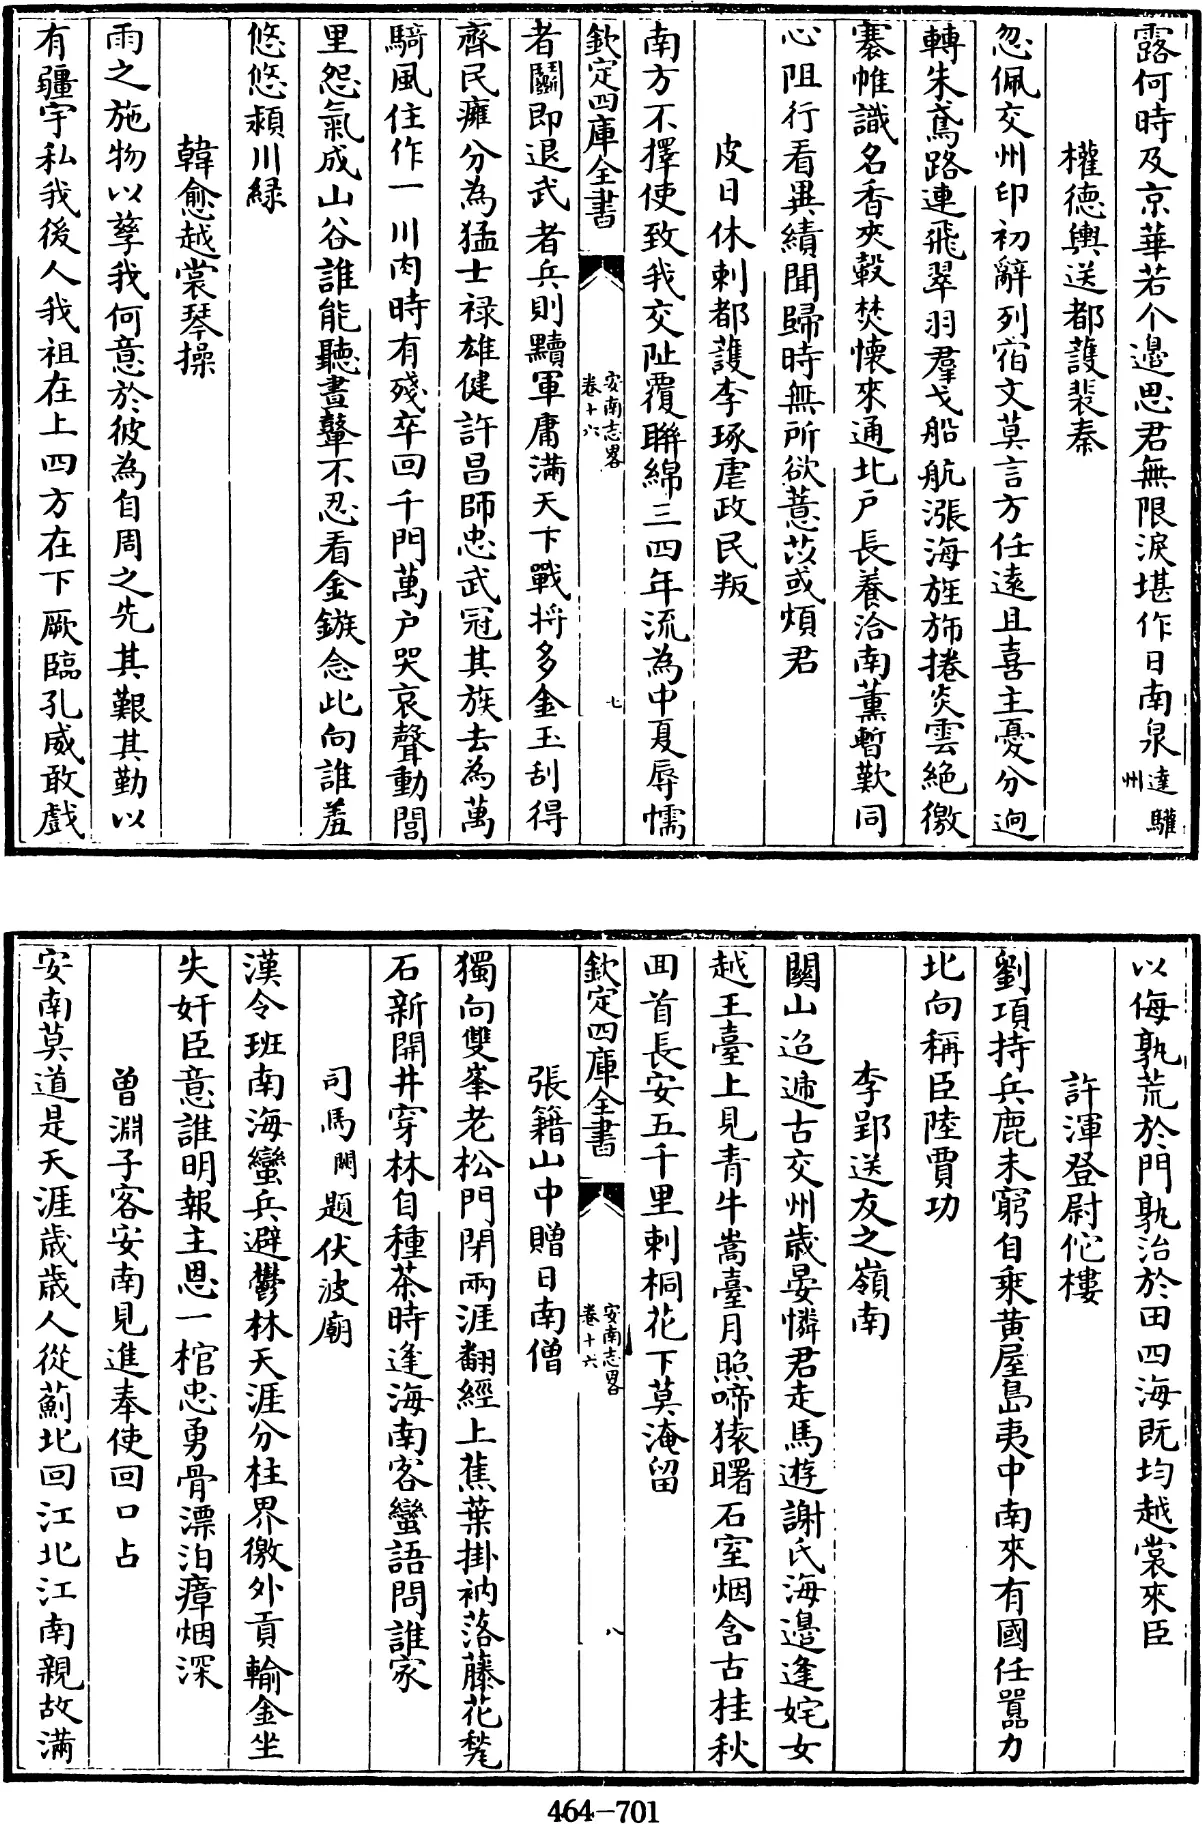 露何時及京華若个邉思君無限淚堪作日南泉驩州達
權德輿送都護裴泰
忽佩交州印初辭列宿文莫言方任逺且喜主憂分逈
轉朱鳶路連飛翠羽羣戈船航漲海旌斾捲炎雲絶徼
褰帷識名香夾轂焚懷來通北户長養洽南薰暫歎同
心阻行看異績聞歸時無所欲薏苡或煩君
皮日休刺都護李琢虐政民叛
南方不擇使致我交阯覆聯綿三四年流為中夏辱懦
欽定四庫全書
安南志畧
卷十六
七
者鬭即退武者兵則黷軍庸滿天下戰將多金玉刮得
齊民癰分為猛士禄雄健許昌師忠武冠其族去為萬
騎風住作一川肉時有殘卒回千門萬户哭哀聲動閭
里怨氣成山谷誰能聽晝鼙不忍看金鏃念此向誰羞
悠悠潁川緑
韓愈越裳琴操
雨之施物以孳我何意於彼為自周之先其艱其勤以
有疆宇私我後人我祖在上四方在下厥臨孔威敢戲
以侮孰荒於門孰治於田四海既均越裳來臣
許渾登尉佗樓
劉項持兵鹿未窮自乘黄屋島夷中南來有國任囂力
北向稱臣陸賈功
李郢送友之嶺南
關山迢遞古交州歲晏憐君走馬遊謝氏海邉逢姹女
越王臺上見青牛嵩臺月照啼猿曙石室烟含古桂秋
囬首長安五千里刺桐花下莫淹留
欽定四庫全書
安南志畧
卷十六
八
張籍山中贈日南僧
獨向雙峯老松門閉兩涯翻經上蕉葉掛衲落藤花甃
石新開井穿林自種茶時逢海南客蠻語問誰家
司馬闕題伏波廟
漢令班南海蠻兵避鬱林天涯分柱界徼外貢輸金坐
失奸臣意誰明報主恩一棺忠勇骨漂泊瘴烟深
曽淵子客安南見進奉使回口占
安南莫道是天涯歳歳人從薊北回江北江南親故滿
464-701